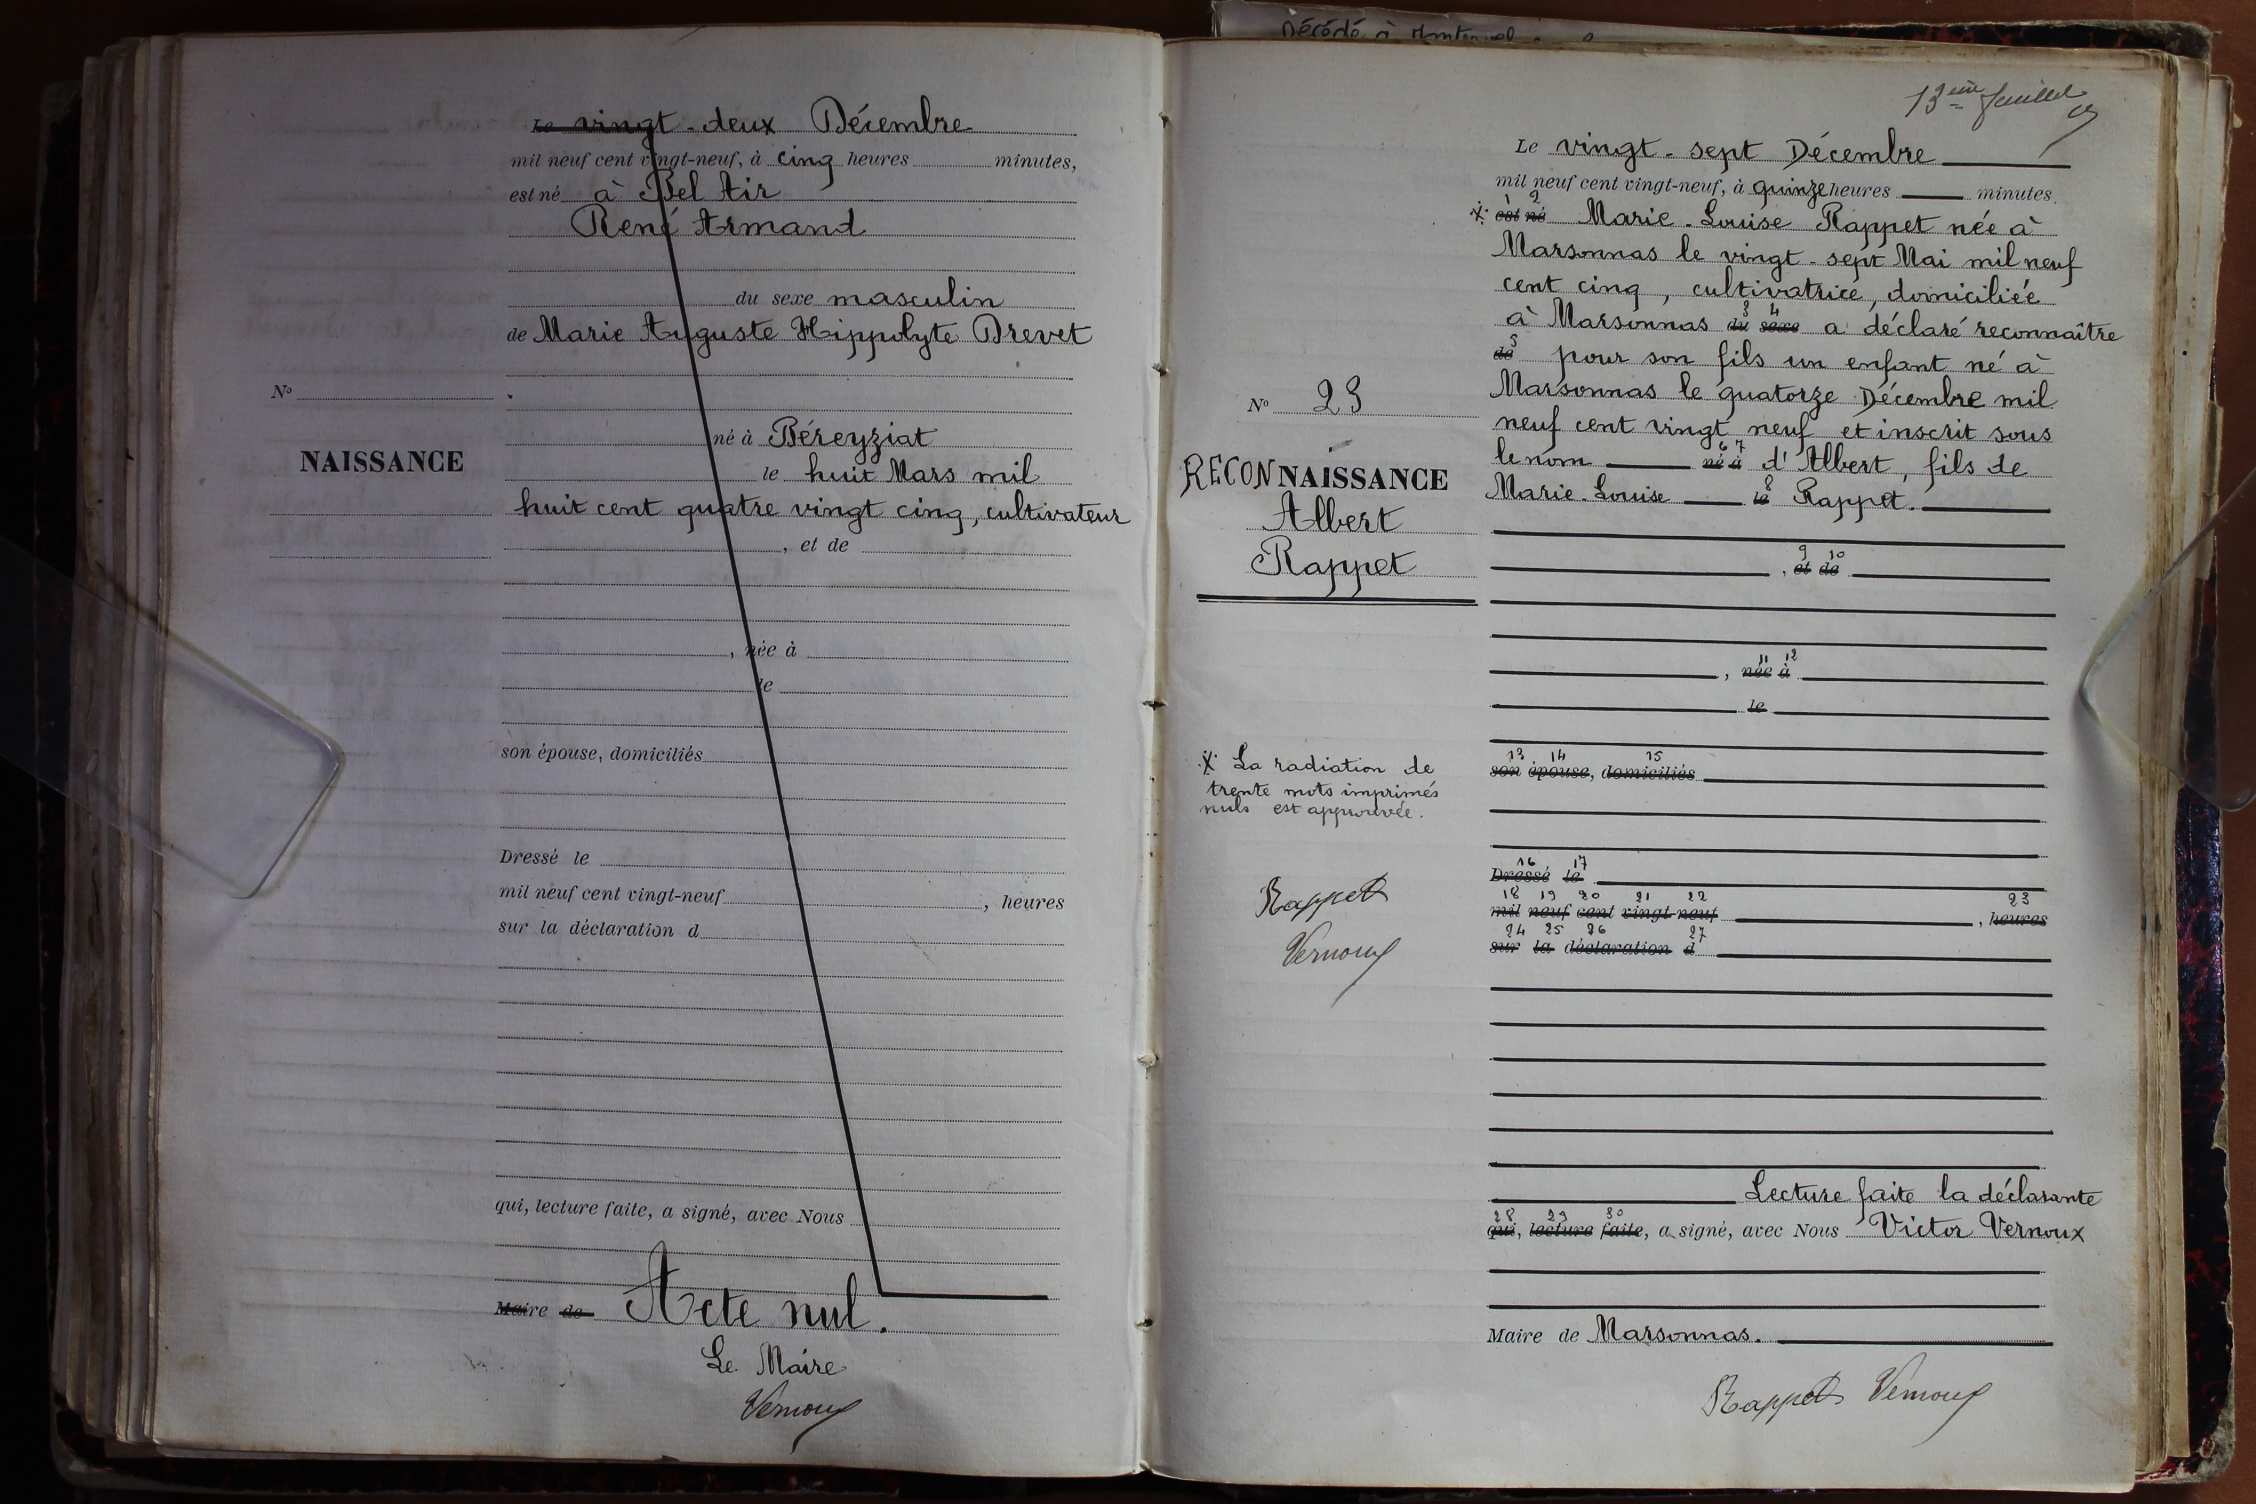 Décédé à
Le vingt-deux Décembre
mil neuf cent vingt-neuf, à cinq heures minutes,
est né à Bel Air
René Armand
du sexe masculin
de Marie Auguste Hippolyte Drevet
N°
né à Béreyziat
NAISSANCE
le huit Mars mil
huit cent quatre vingt cinq, cultivateur
, et de
, née à
le
son épouse, domiciliés
Dressé le
mil neuf cent vingt-neuf , heures
sur la déclaration d
qui, lecture faite, a signé, avec Nous
Maire de Acte nul.
Le Maire
Vernoux
13ème feuillet
Le vingt-sept Décembre
mil neuf cent vingt-neuf, à quinze heures minutes
1 2
⁒ est né Marie-Louise Rappet née à
Marsonnas le vingt-sept Mai mil neuf
cent cinq, cultivatrice, domiciliée
3 4
à Marsonnas du sexe a déclaré reconnaître
5
de pour son fils un enfant né à
N° 23
Marsonnas le quatorze Décembre mil
neuf cent vingt neuf et inscrit sous
6 7
le nom né à d'Albert, fils de
RECONNAISSANCE
8
Marie-Louise le Rappet.
Albert
Rappet
9 10
, et de
11 12
, née à
le
⁒ La radiation de
trente mots imprimés
nuls est approuvée.
13 14 15
son épouse, domiciliés
16 17
Dressé le
Rappet
18 19 20 21 22 23
mil neuf cent vingt-neuf , heures
Vernoux
24 25 26 27
sur la déclaration d
Lecture faite la déclarante
28 29 30
qui, lecture faite, a signé, avec Nous Victor Vernoux
Maire de Marsonnas.
Rappet Vernoux